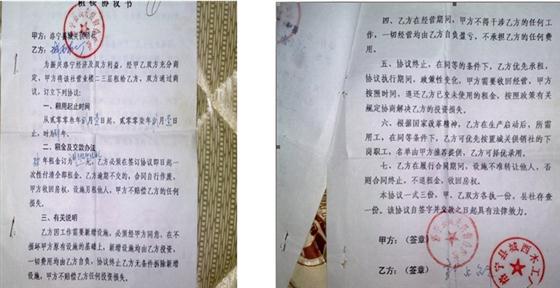 租赁协议书
甲方：洛宁县城关供销社
乙方：
为振兴洛宁经济及双方利益，经甲乙双方充分商
定，甲方将该社营业楼二三层租给乙方，双方通过商
议，订立下列协议：
一、租用起止时间
从贰零零叁年 月 日起，贰零零柒年 月 日
止，时为 年。
二、租金及交款办法
年租金订为 元，乙方必须在签订协议即日起一
次性付清全部租金，乙方逾期不交的，合同自行作废，
甲方收回房权，设施另租他人，甲方不赔偿乙方的任何
损失。
三、有关说明
乙方因工作需要新增设施，必须经甲方同意，在不
损坏甲方原有设施的基础上，新增设施均由乙方投资，
一切费用均由乙方自负，协议终止乙方无条件拆除新增
设施，甲方不赔偿乙方任何投资损失。
四、乙方在经营期间，甲方不得干涉乙方的任何工
作，一切经营均由乙方自负盈亏，不承担乙方的任何费
用。
五、协议终止，在同等的条件下，乙方优先承租，
协议执行期间，政策性变化，甲方需要收回经营，甲方
按照时间，退还乙方已交未使用的租金，按照政策有关
规定协商解决乙方的投资损失。
六、根据国家改革精神，乙方在生产启动后，所需
用工，在同等条件下，乙方可优先使用城关供销社的下
岗职工，名单由甲方推荐提供，乙方可择优录用。
七、乙方在履行合同期间，设施不准转让他人，否
则合同终止，不退租金，收回房权。
本协议一式三份，甲、乙双方各执一份，县社存查
一份。该协议自签字并交款之日起具有法律效力。
甲方：（签章）
乙方：（签章）
洛宁县城西木工厂